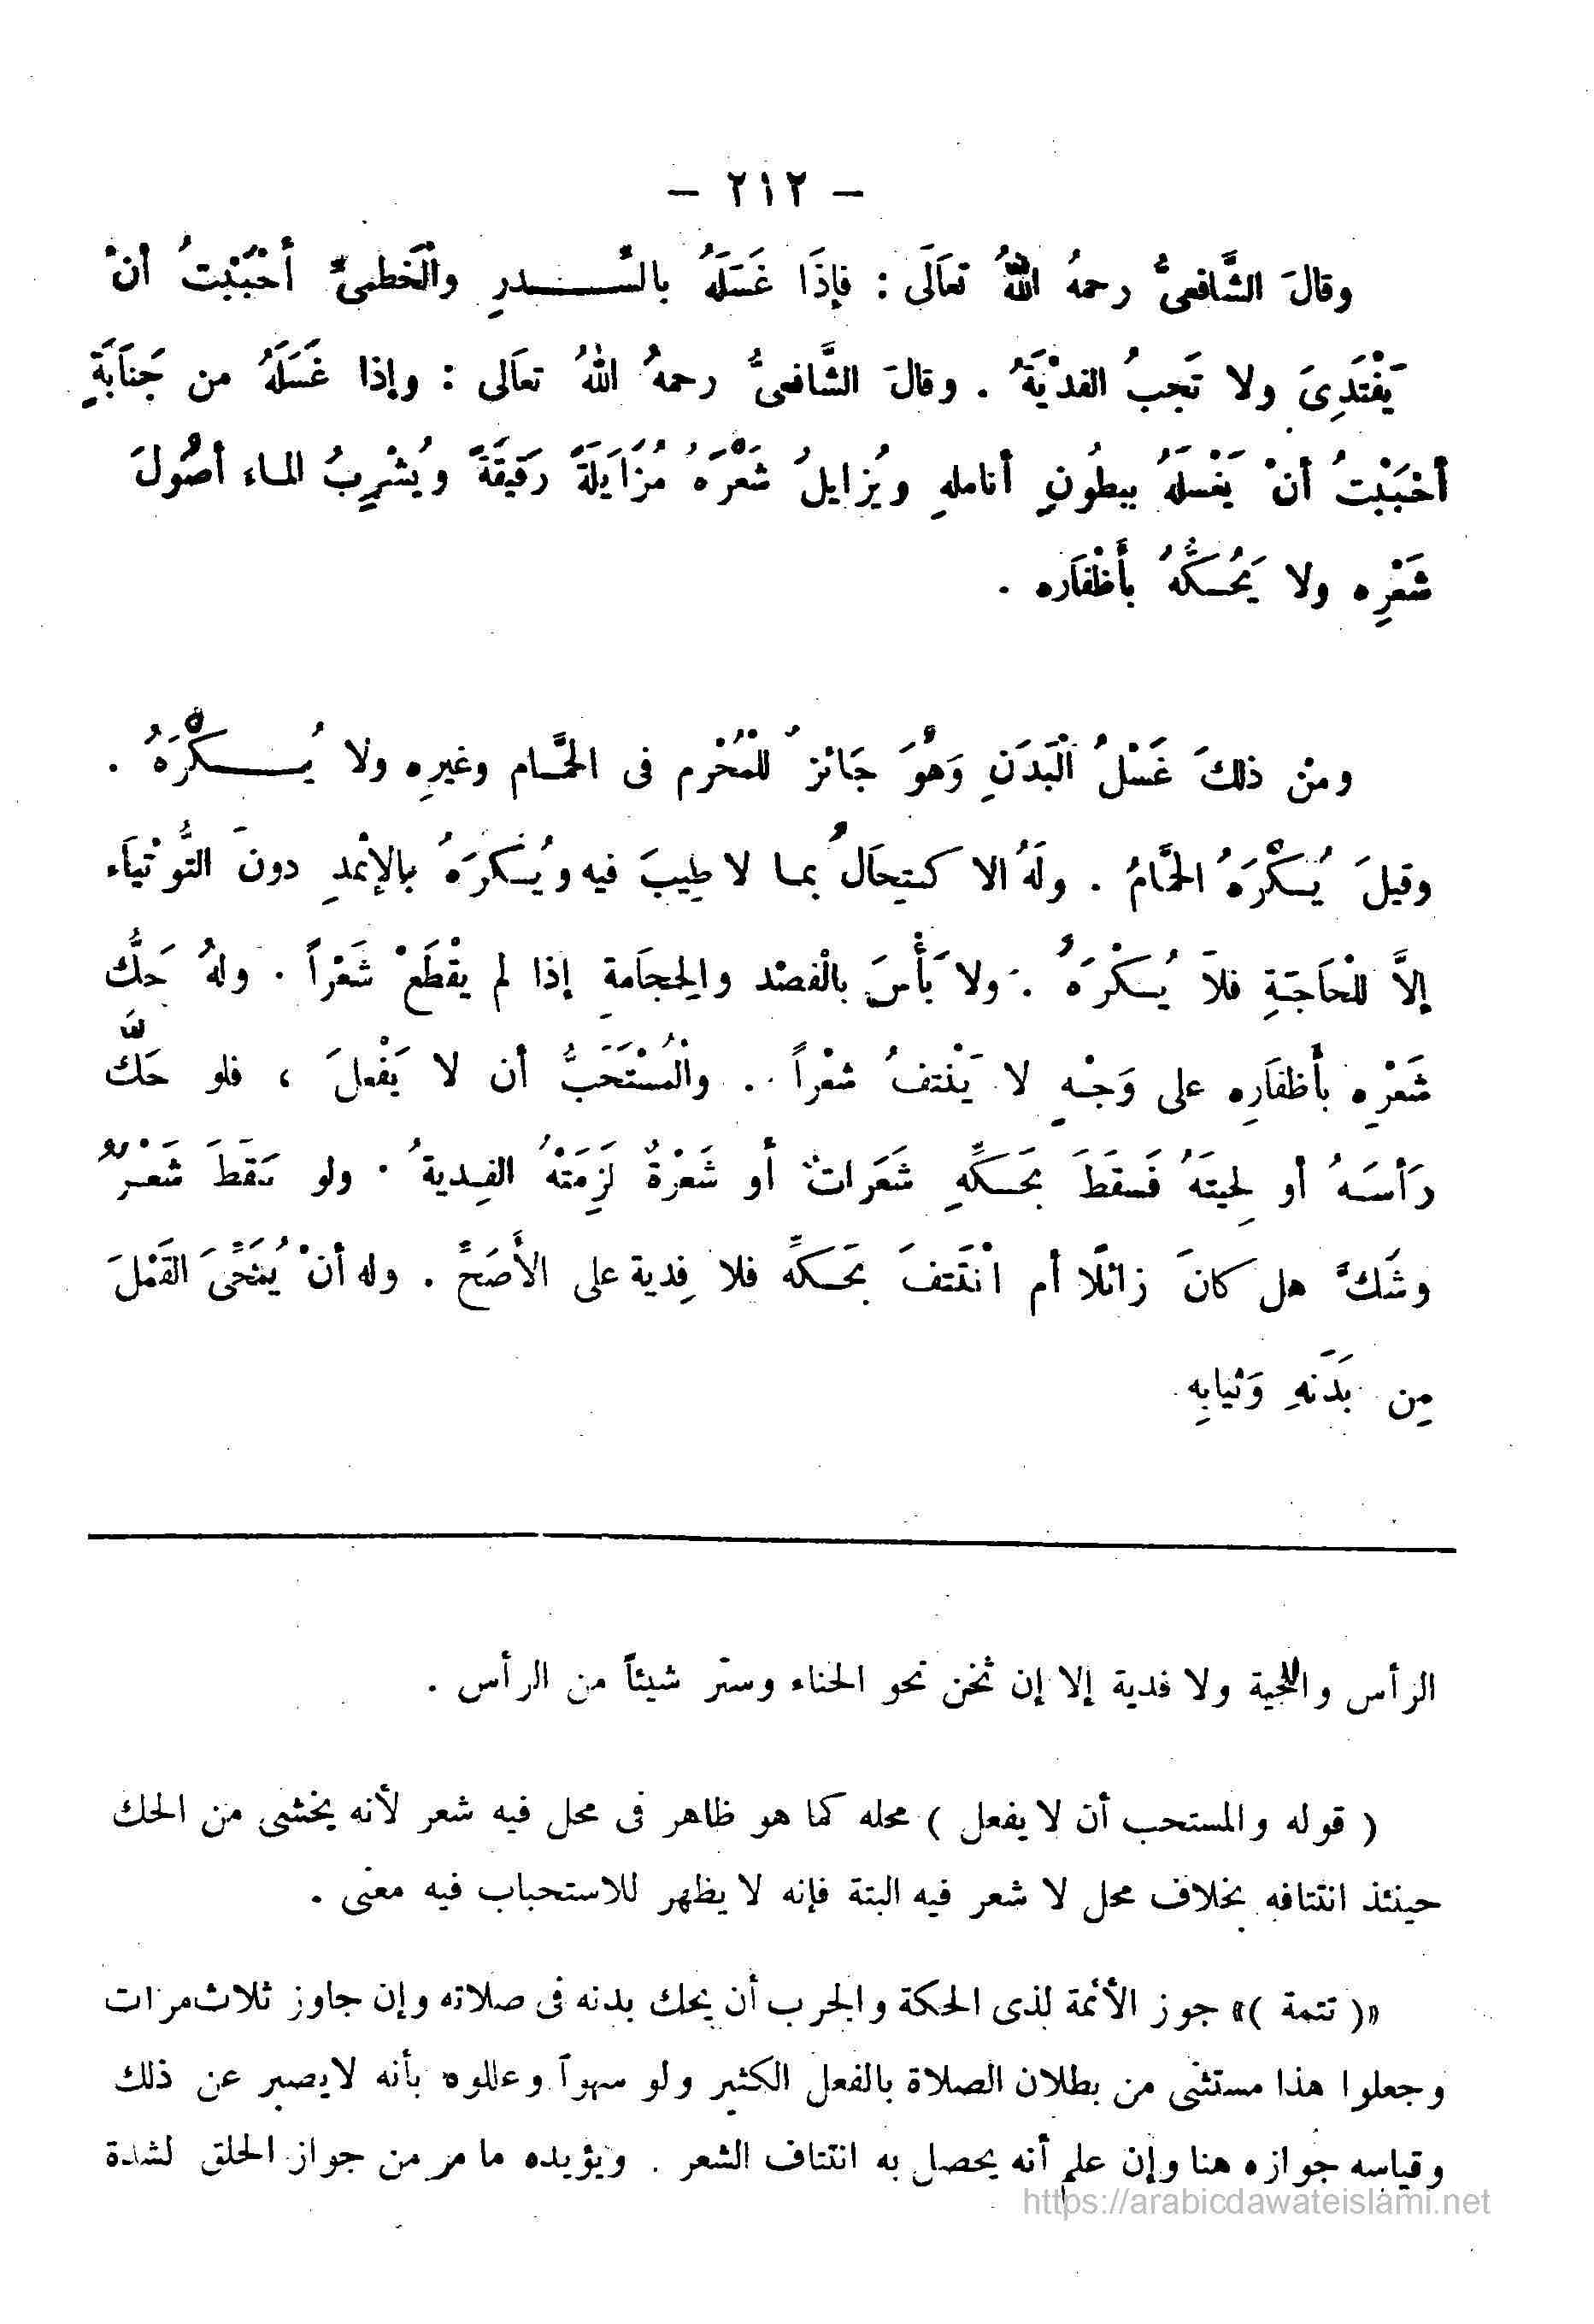 — ٢١٢ —
وقالَ الشَّافعىُّ رحمهُ اللهُ تعَالَى : فإذَا غَسَلَهُ بالسِّدرِ والْخَطمىِّ أحْبَبْتُ أنْ
يَفْتَدِىَ ولا تَجبُ الفدْيَةُ . وقالَ الشَّافعىُّ رحمهُ اللهُ تعَالى : وإذا غَسَلَهُ من جَنَابَةٍ
أحْبَبْتُ أنْ يَغْسلَهُ ببطُونِ أناملهِ ويُزايلُ شَعْرَهُ مُزَايَلَةً رَقيقَةً ويُشْرِبُ الماء أصُولَ
شَعْرِه ولا يَحُكَّهُ بأَظْفَاره .
ومنْ ذلكَ غَسْلُ الْبَدَنِ وَهُوَ جَائزٌ للْمُحْرم فى الحمَّام وغيرِه ولا يُكْرَهُ .
وقيلَ يُكْرَهُ الحمَّامُ . ولَهُ الاكتِحَالُ بما لا طِيبَ فيه ويُكرَهُ بالإثمدِ دونَ التُّوْتيَاء
إلاَّ للْحَاجَةِ فلاَ يُكْرَهُ . ولا بَأْسَ بالْفصْد والِحجَامةِ إذا لم يقْطَعْ شَعْراً . ولهُ حَكُّ
شَعْرِه بأَظفَارِه على وَجْهٍ لا يَنْتفُ شعْراً . والْمُسْتَحَبُّ أن لا يَفْعلَ ، فلو حَكَّ
رَأسَهُ أو لِحيتَهُ فَسقَطَ بحَكِّهِ شَعَراتٌ أو شَعْرةٌ لَزِمَتْهُ الفِديةُ . ولو سَقَطَ شعْرٌ
وشَكَّ هل كانَ زائلًا أم انْتَتفَ بحَكِّه فلا فِدية على الأَصَحِّ . وله أنْ يُنَحِّىَ القَمْلَ
مِن بَدَنهِ وَثيابِه
الرأس واللحية ولا فدية إلا إن ثخن نحو الحناء وستر شيئاً من الرأس .
( قوله والمستحب أن لا يفعل ) محله كما هو ظاهر فى محل فيه شعر لأنه يخشى من الحك
حينئذ انتتافه بخلاف محل لا شعر فيه البتة فإنه لا يظهر للاستحباب فيه معنى .
«( تتمة )» جوز الأئمة لذى الحكة والجرب أن يحك بدنه فى صلاته وإن جاوز ثلاث مرات
وجعلوا هذا مستثنى من بطلان الصلاة بالفعل الكثير ولو سهواً وعللوه بأنه لا يصبر عن ذلك
وقياسه جوازه هنا وإن علم أنه يحصل به انتتاف الشعر . ويؤيده ما مر من جواز الحلق لشدة
https://arabicdawateislami.net